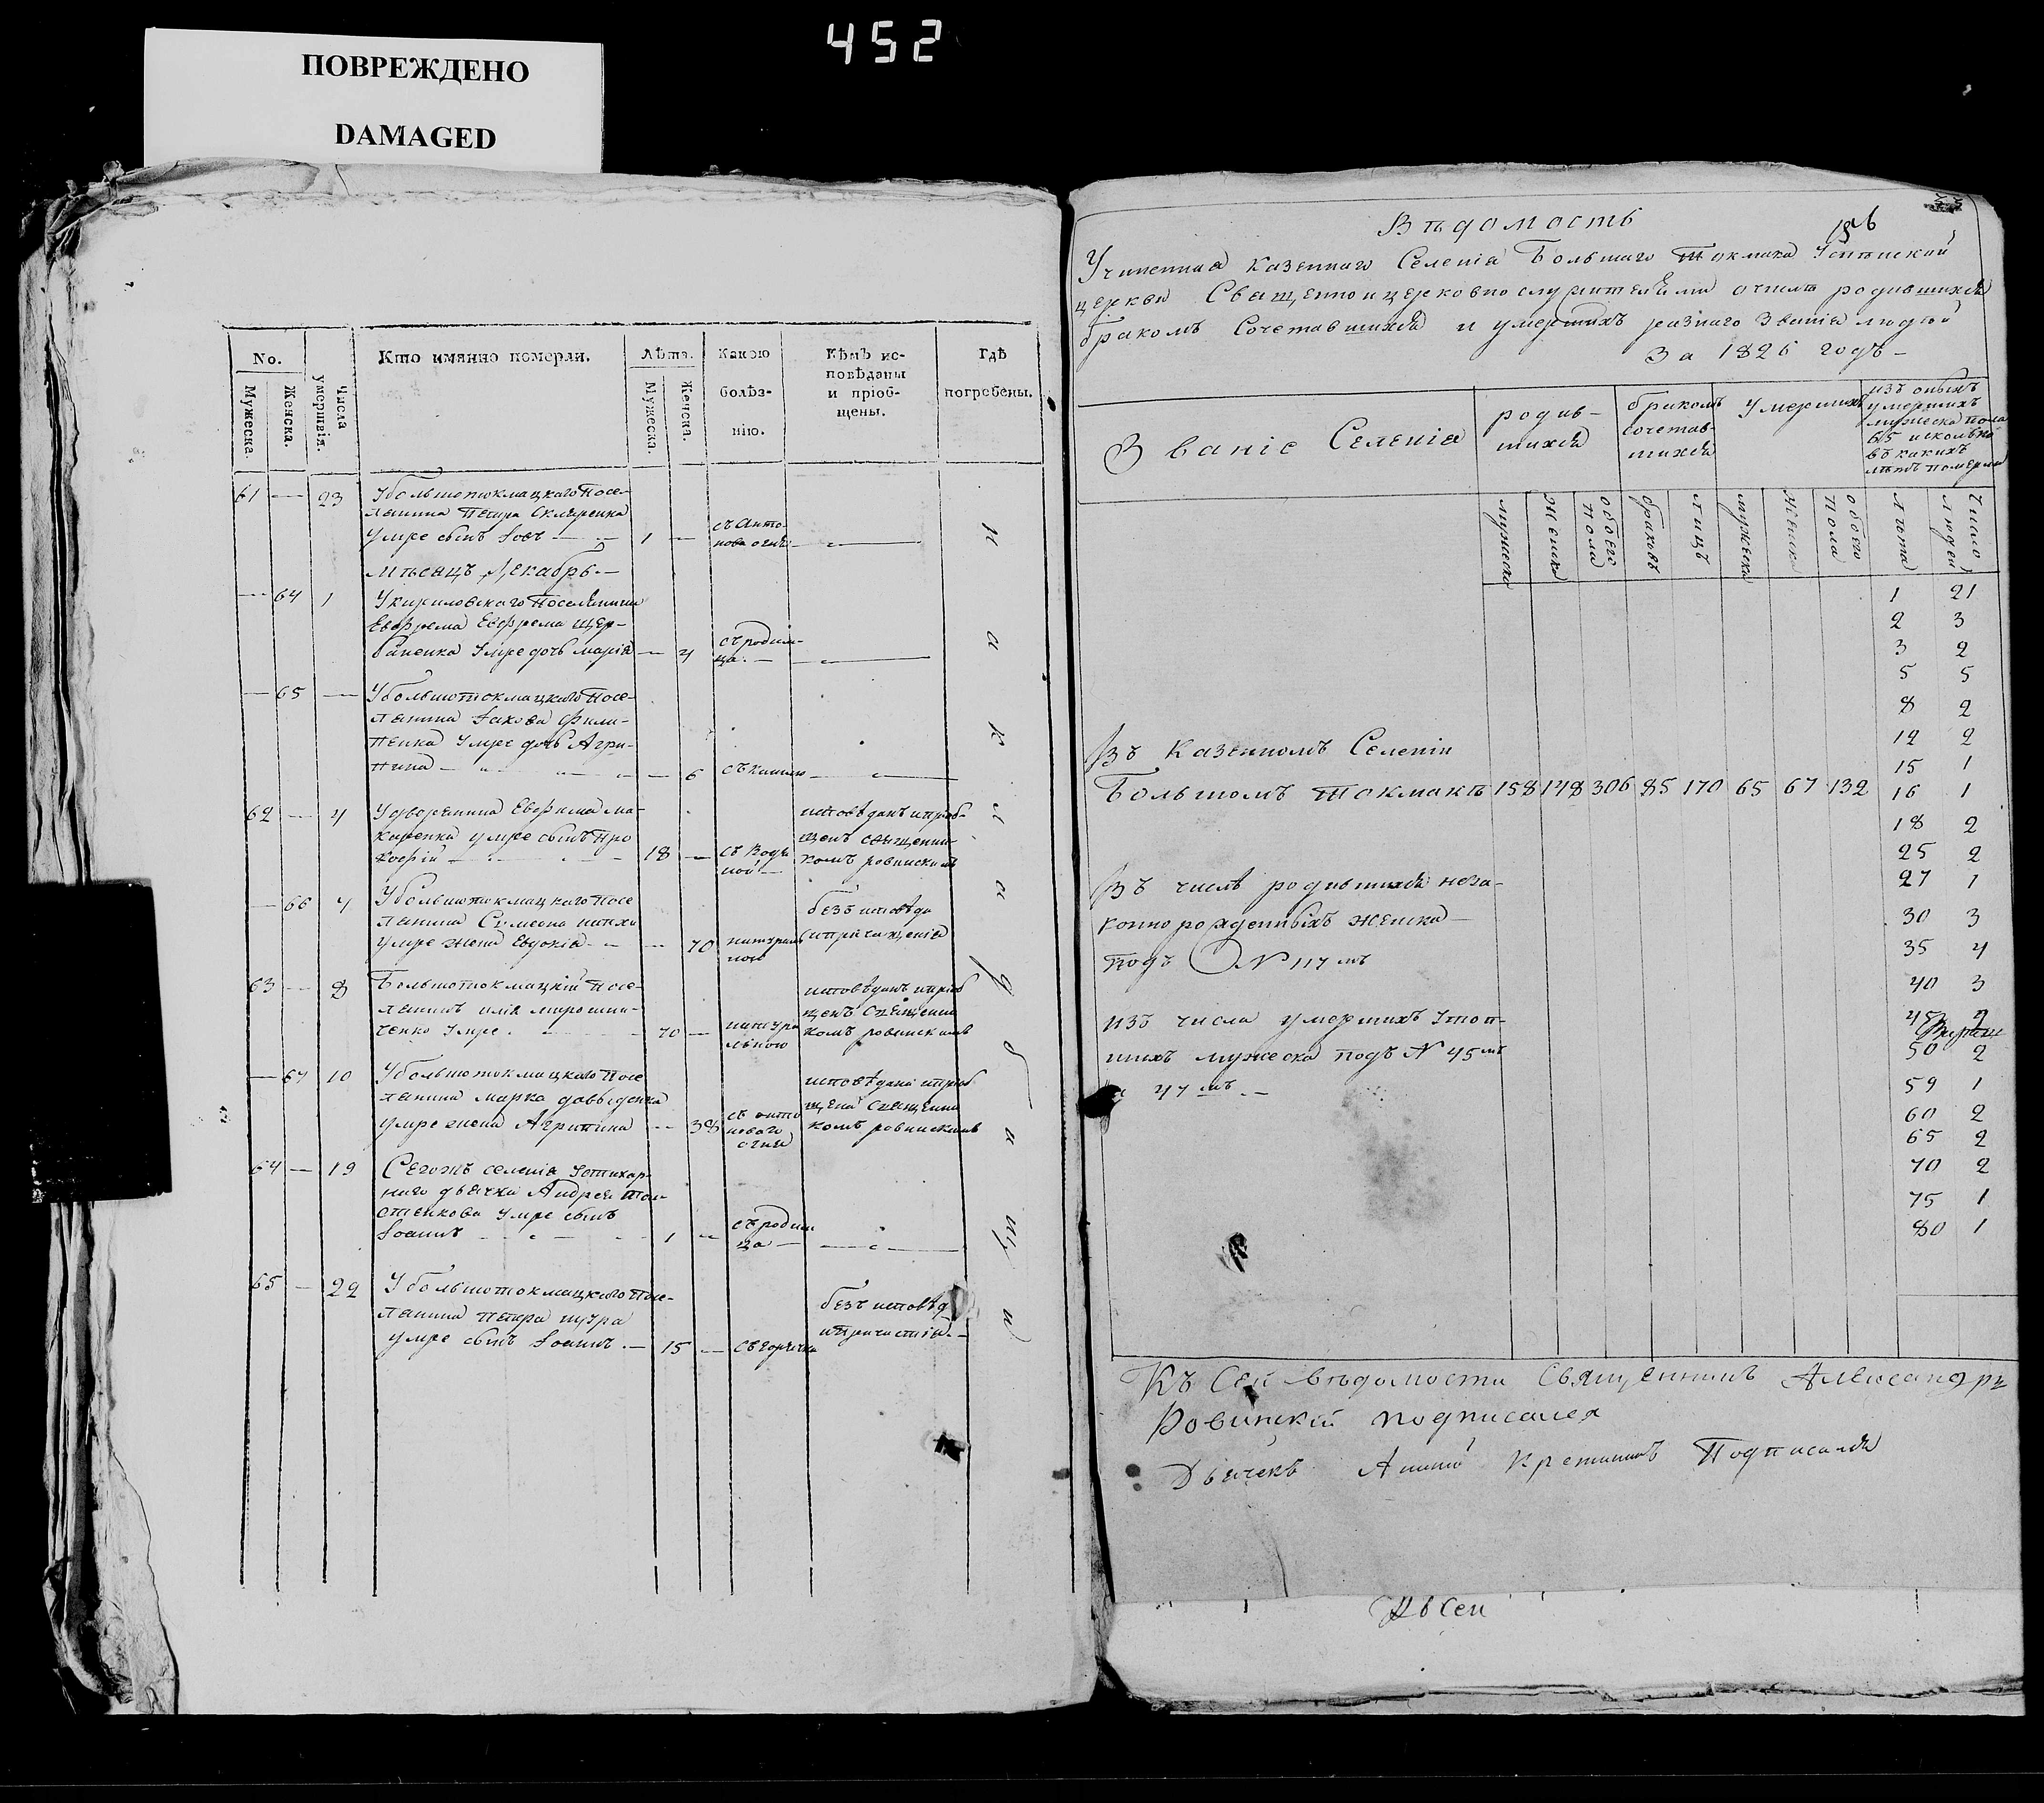 452
ПОВРЕЖДЕНО
DAMAGED
No.
Мужеска.
Женска.
Числа умертвія.
Кто имянно померли.
Лѣта.
Мужеска.
Женска.
Какою болѣз-
нію.
Кѣмъ ис-
повѣданы
и пріоб-
щены.
Гдѣ
погребены.
61 — 23 У большотокмацкаго Посе-
лянина Петра Скляренка
умре сынъ Іовъ — 1 — съ Анто-
нова огня —
Мѣсяцъ Декабрь. —
— 64 1 У кириловскаго Поселянина
Евфрема Щер-
баненка Умре дочь Марія — 4 съ родим-
ца. —
— 65 — У большотокмацкаго Посе-
лянина Іакова Фили-
пенка Умре дочь Агри-
пина — — 6 съ кашлю —
62 — 4 У дворянина Евфима Ма-
каренка умре сынъ Про
кофій — 18 — съ водя
ной —
исповѣданъ и пріоб-
щенъ священни-
комъ ровинскимъ
— 66 4 У большотокмацкаго Посе
лянина Сумеона
умре жена Евдокія — — 70 натураль
ною
безъ исповѣди
и причащенія
63 — 8 Большотокмацкій Посе-
лянинъ Илія Мирошни-
ченко Умре. — 70 — натура
льною
исповѣданъ и пріоб
щенъ священни
комъ ровинскимъ
— 67 10 У большотокмацкаго Посе
лянина Марка давыденка
умре жена Агрипина — 38 съ анто
нового
огня
исповѣдана и пріоб
щена священни
комъ ровинскимъ
64 — 19 Сегожъ селенія
дьячка Андрея
умре сынъ
Іоаннъ — 1 — съ родим
ца —
65 — 22 У большотокмацкаго Посе-
лянина Петра щура
умре сынъ Іоаннъ. — 15 — съ горячки
безъ исповѣд
и Причастія. —
н а к л а д б и щ и
Вѣдомость
Учиненная казеннаго Селенія Большаго Токмака Успенской
церкви Священноицерковнослужителями о числѣ родившихся
бракомъ Сочетавшихся и умершихъ разнаго Званія людей
За 1826 годъ —
Званіе Селенія
родив-
шихся
бракомъ
сочетав-
шихся
Умершихъ
изъ оныхъ
умершихъ
мужеска пола
65 и сколько
въ какихъ
лѣтъ померли
мужеска
женска
обоего пола
браковъ
лицъ
мужеска
женска
обоего пола
лѣта
Число людей
1 21
2 3
3 2
5 5
8 2
12 2
15 1
16 1
18 2
25 2
27 1
30 3
35 4
40 3
45 2
50 2
59 1
60 2
65 2
70 2
75 1
80 1
Въ Казенномъ Селеніи
Большомъ Токмакѣ 158 148 306 85 170 65 67 132
Въ числѣ родившихся неза-
коннорожденныхъ женска —
подъ № 117 мъ
изъ числа умершихъ Утоп-
шихъ мужеска подъ № 45 мъ
и 47 мъ. —
Къ Сей вѣдомости Священникъ Александръ
Ровинскій подписался
Дьячекъ Крешинъ Подписался
Къ Сей